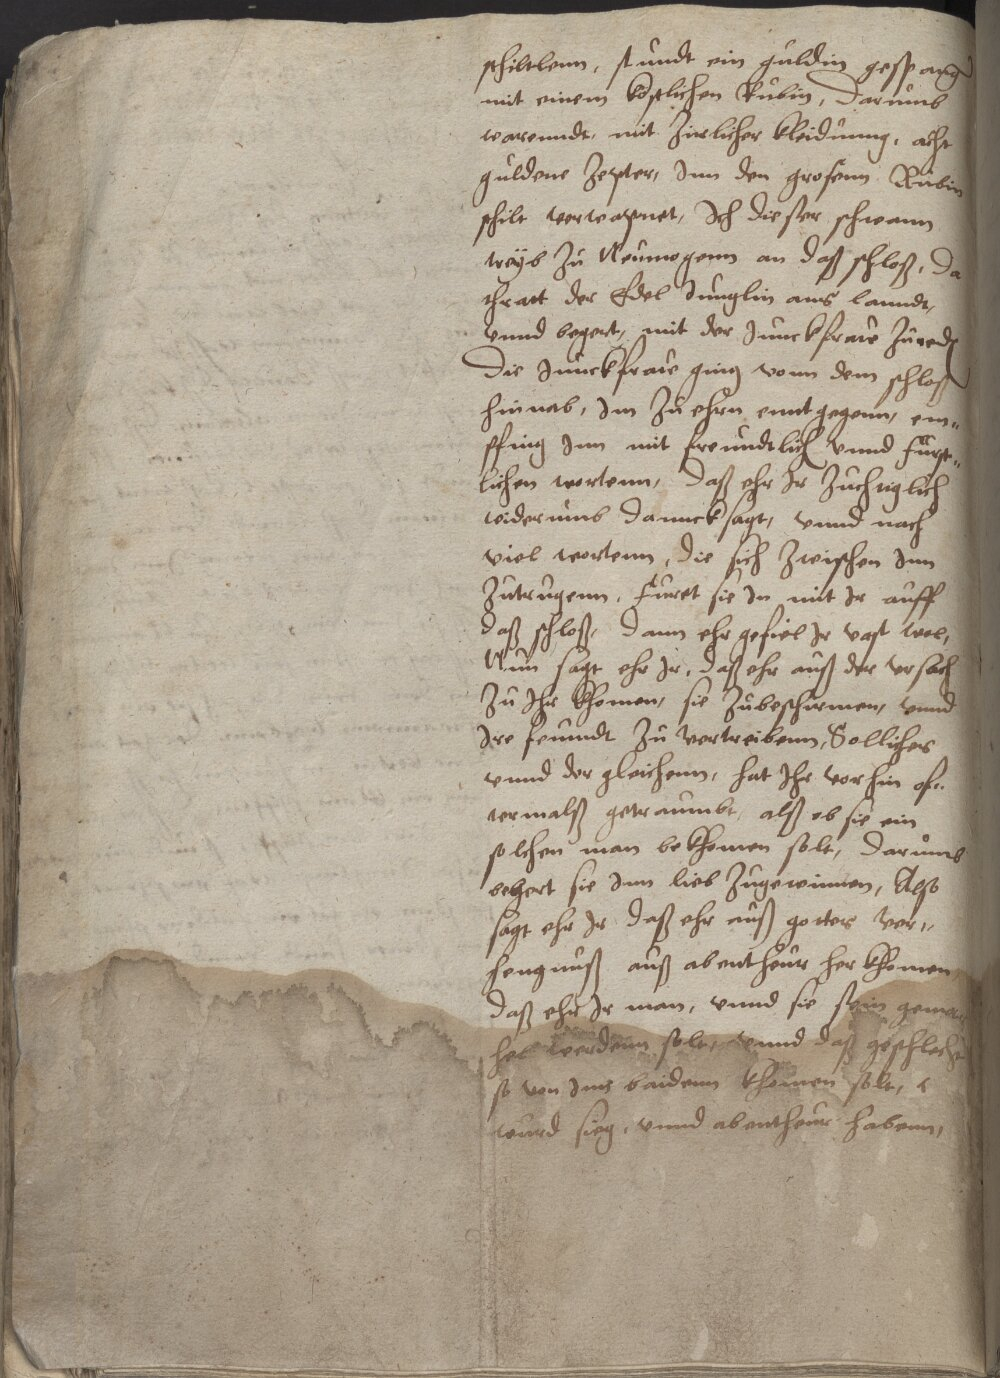 schiltlenn, stundt ein guldin gespang
mit einem köstlichen Rubin, darumb
warenndt, mit Zirlicher kleidunng, acht
guldene Zepter, Inn den grosenn Rubin
schilt verwapnet, Ich dieser schwann
weÿb Zu Neumogenn an daß schloß, Da
thratt der Edel Junglin ans lanndt,
vnnd begert, mit der Junckfrawe Zu redē
Die Junckfrawe ging vonn dem schloß
hinnab, Im Zu ehrn enntgegenn, em„
pfing Inn mit freundtlich vnnd fürst„
lichen wortenn, daß ehr Ir Zuchtiglich
widerumb dannck sagt, vnnd nach
viel wortenn, die sich Zwischen Inn
Zutrugenn, füret sie In mit Ir auff
daß schloß, dann ehr gefiel Ir vast wol,
Nun sagt ehr Ir, daß ehr auß der vrsach
Zu Ihr khomen, sie Zubeschirmen, vnnd
Ire feinndt Zu vertreibenn, Sollichs
vnnd der gleichenn, hat Ihr vorhin of„
termalß getraumbt, alß ob sie ein
solchen man bekhomen solt, darumb
begert sie Inn lieb Zugewinnen, Also
sagt ehr Ir daß ehr auß gottes ver„
hengnuß auß abentheur her khomen
daß ehr Ir man, vnnd sie sein gema„
hel werdenn solt, vnnd daß geschlecht
so von Inns baidenn khomen solt,
wurd sieg, vnnd abentheur habenn,